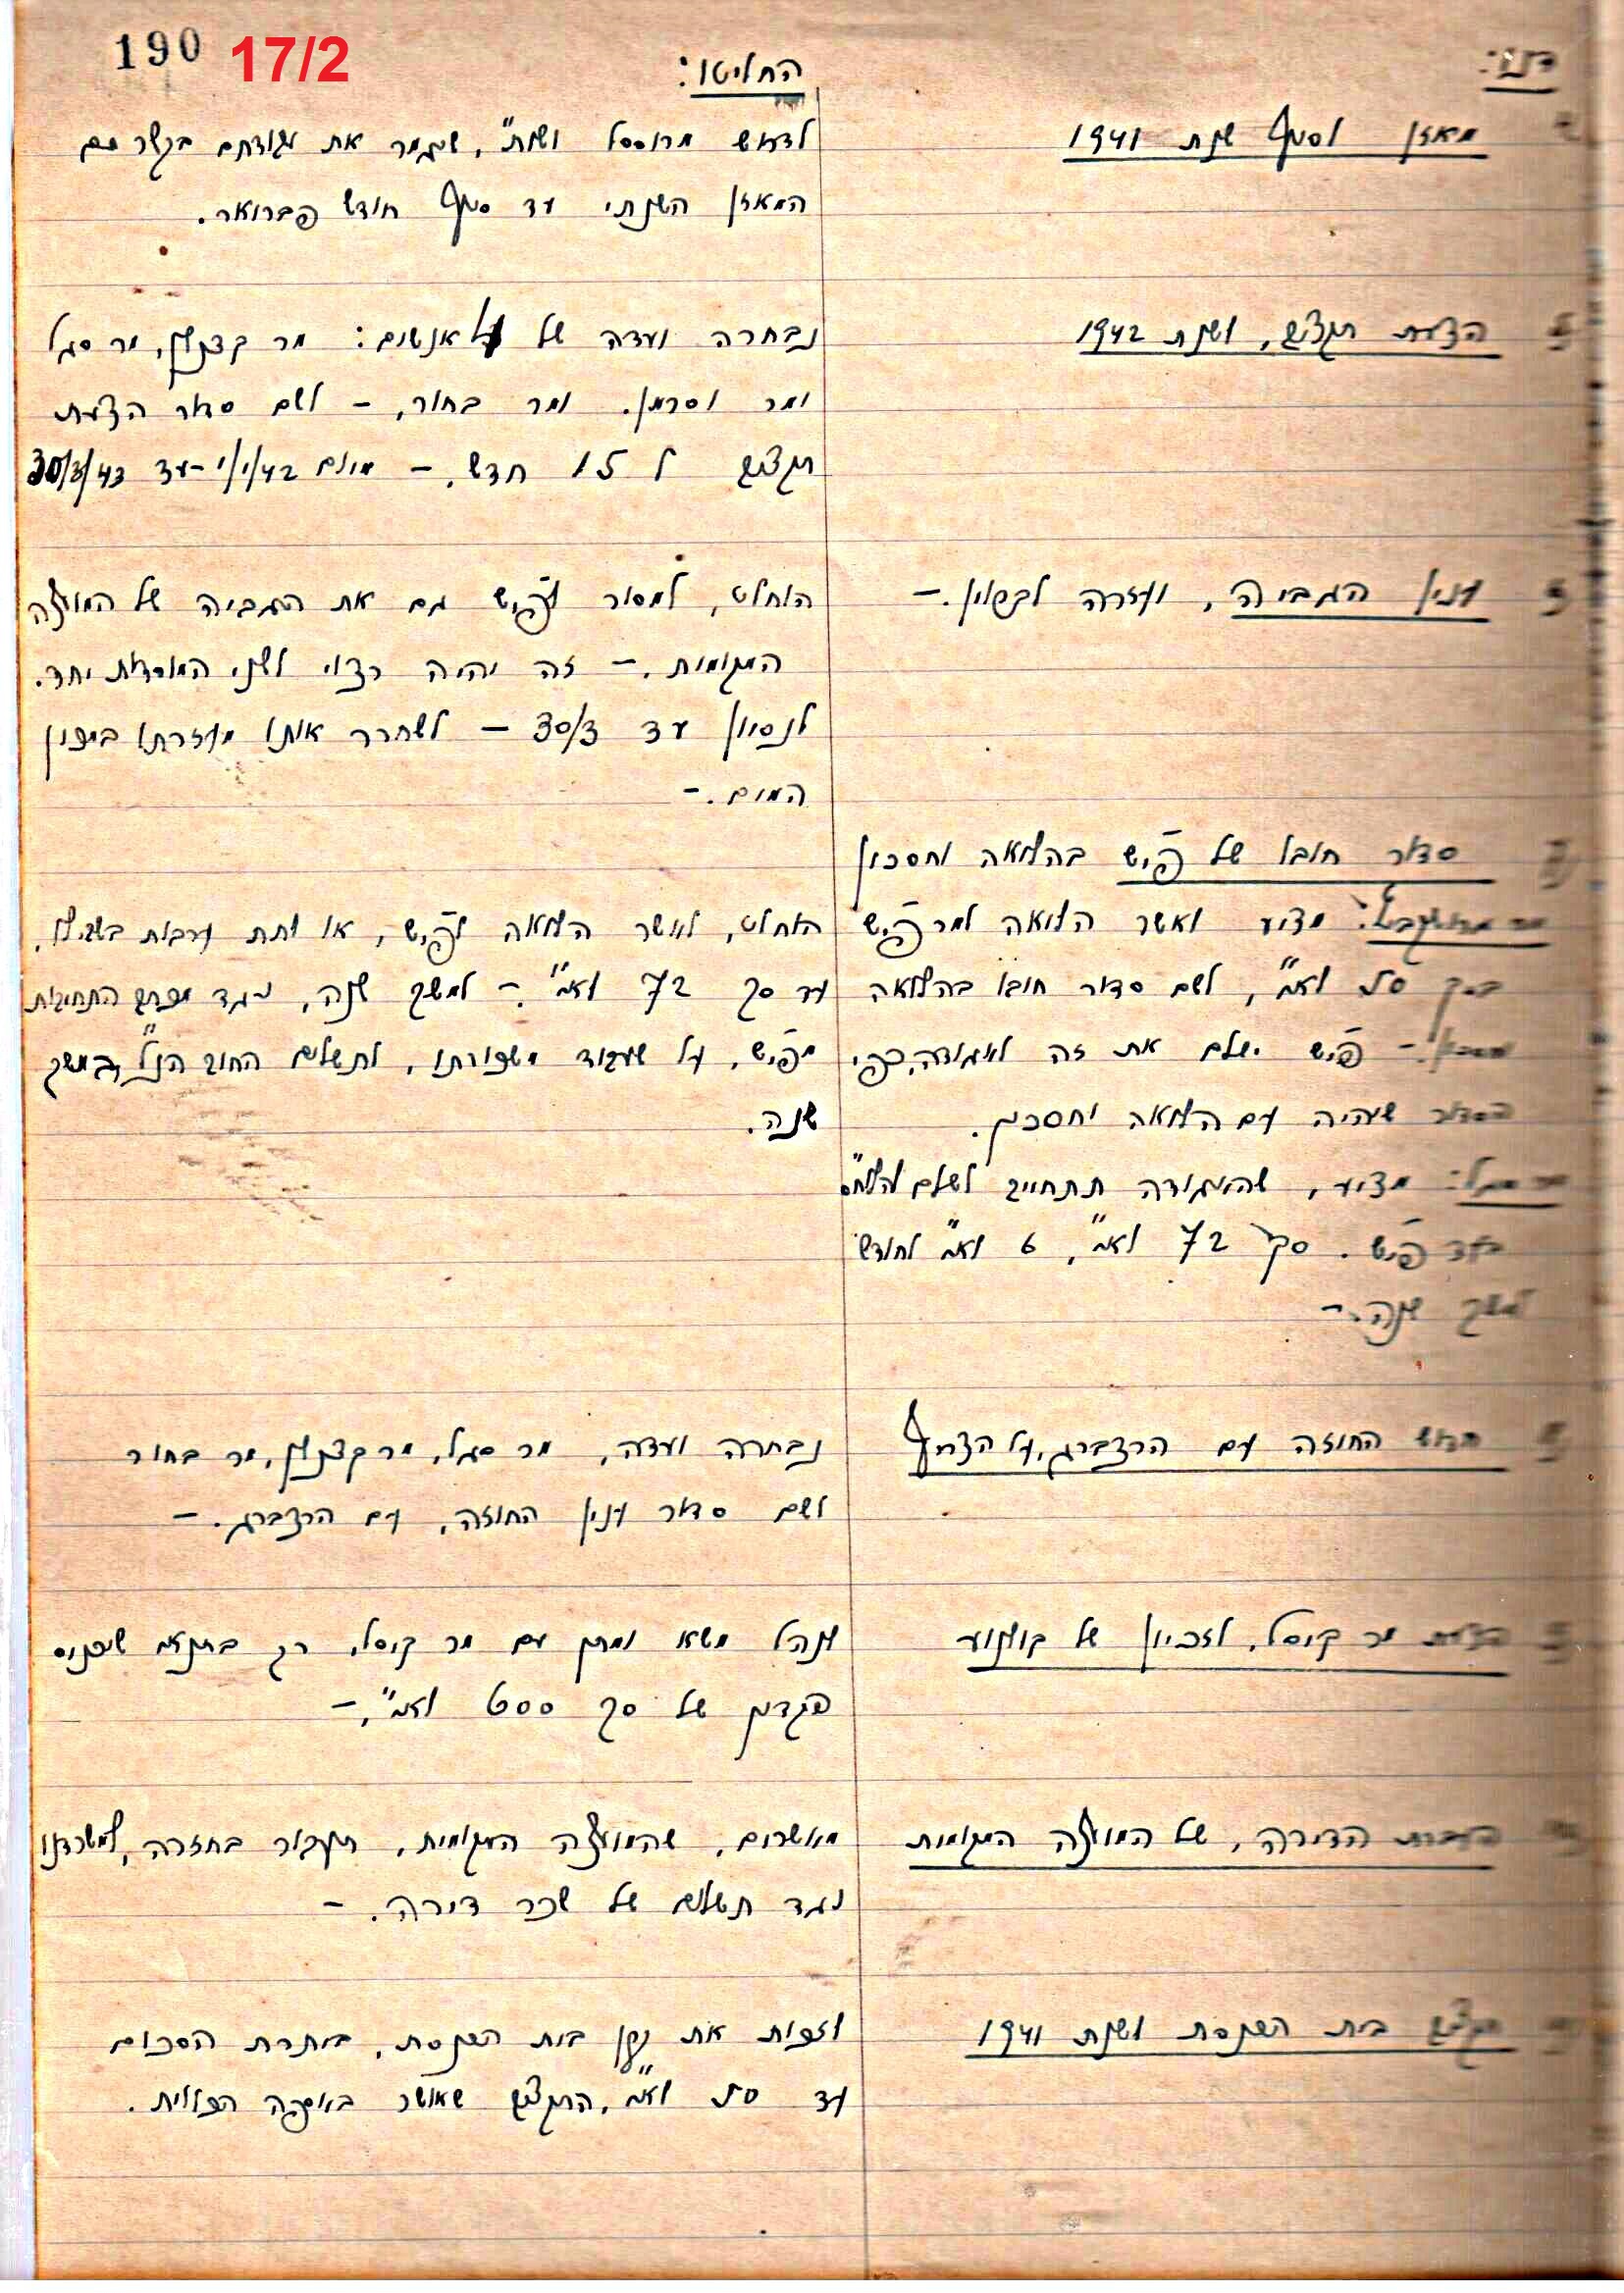 190 17/2
דנו:
החליטו:
מאזן לסוף שנת 1941
לדרוש מרוססל ושות", שיגמר את עבודתם בקשר עם
המאזן השנתי עד סוף חודש פברואר.
הצעת תקציב, לשנת 1942
נבחרה ועדה של אנשים: מר קצנלסון, מר סגל
ומר וסרמן. ומר בחור, – לשם סדור הצעת
תקציב ל 15 חדש. – מיום 1/1/42 – עד 30/3/43
ענין הגביה, ועזרה לבפנוכו. –
הוחלט, למסור לפיש גם את הגביה של המועצה
המקומית. – זה יהיה רצוי לשני המוסדות יחד.
לנסיון עד 30/3 – לשחרר אותו מעזרתו במכון
המים. –
סדור חובו של פיש בהלואה וחסכון
מציע לאשר הלואה למר פיש
בסך 50 לא"י, לשם סדור חובו בהלואה
פיש ישלם את זה לאגודה, כפי
הסדור שיהיה עם הלואה וחסכון.
מר סגל: מציע, שהאגודה תתחייב לשלם להלוח"ס
בעד פיש. סך 72 לא"י, 6 לא"י לחודש
למשך שנה. –
הוחלט, לאשר הלואה לפיש, או לתת ערבות בשבילו,
עד סך 72 לא"י – למשך שנה, נגד מכתב התחיבות
מפיש, על שעבוד משכורתו, לתשלום החוב הנ"ל, במשך
שנה.
חדוש החוזה עם הרצברג, על הצריף
נבחרה ועדה, מר סגל, מר קצנלסון, מר בחור
לשם סדור ענין החוזה, עם הרצברג. –
הצעת מר קיסל, לזכיון של קולנוע
לנהל משא ומתן עם מר קיסל, רק בתנאי שיכניס
פקדון של סך 600 לא"י. –
העברת הדירה, של המועצה המקומית
מאשרים, שהמועצה המקומית, תעבור בחזרה, למשרדנו
נגד תשלום של שכר דירה. –
תקציב בית הכנסת לשנת 1941
לזכות את קרן בית הכנסת, ביתרת הסכום
עד 50 לא"י, התקציב שאושר באסיפה הכללית.